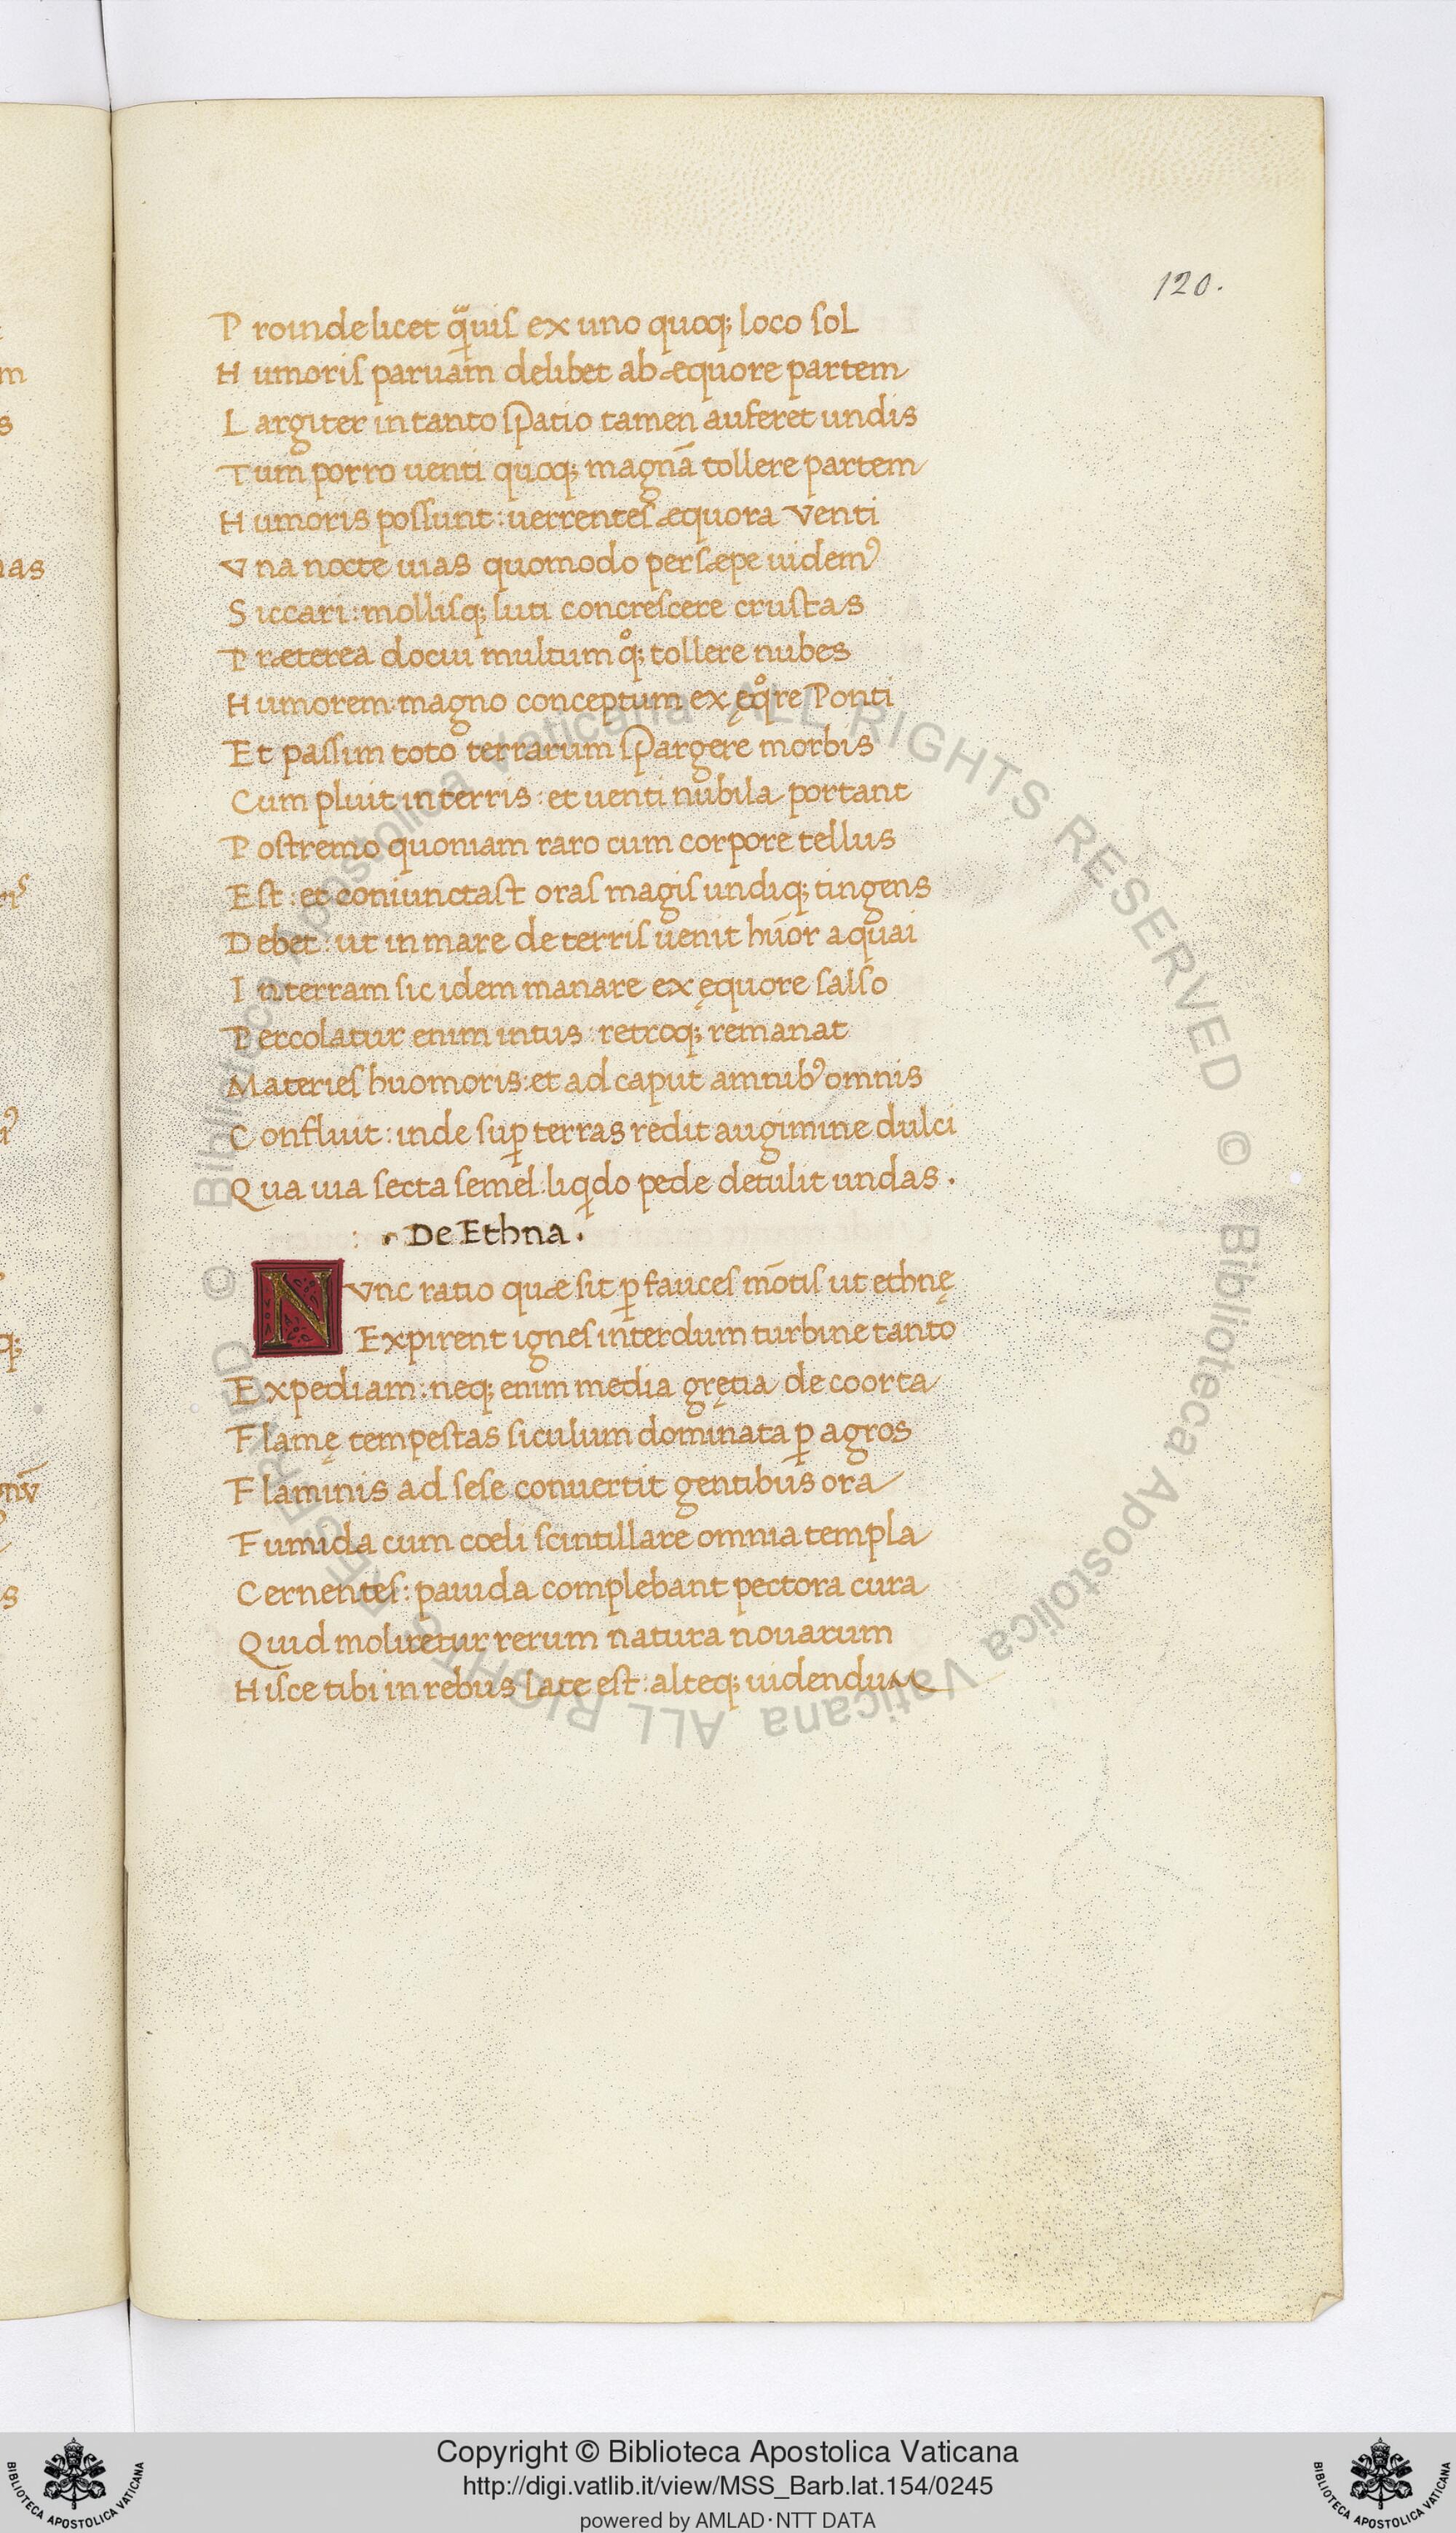 120.
Proinde licet q̃uis ex uno quoq; loco sol
Humoris paruam delibet ab æquore partem
Largiter in tanto spatio tamen auferet undis
Tum porro uenti quoq; magnã tollere partem
Humoris possunt: uerrentes æquora venti
Vna nocte uias quomodo persæpe uidemꝰ
Siccari: mollisq; luti concrescere crustas
Præterea docui multum qͦ; tollere nubes
Humorem: magno conceptum ex ęqͦre Ponti
Et passim toto terrarum spargere morbis
Cum pluit in terris: et uenti nubila portant
Postremo quoniam raro cum corpore tellus
Est: et coniunctast oras magis undiq; tingens
Debet: ut in mare de terris uenit hũor aquai
In terram sic idem manare ex ęquore salso
Percolatur enim intus: retroq; remanat
Materies huomoris: et ad caput amnibꝰ omnis
Confluit: inde suꝑ terras redit augimine dulci
Qua uia secta semel: liqdo pede detulit undas.
De Ethna.
Nvnc ratio quæ sit ꝑ fauces mõtis ut ethnę
Expirent ignes interdum turbine tanto
Expediam: neq; enim media grętia de coorta
Flamę tempestas siculum dominata ꝑ agros
Flaminis ad sese conuertit gentibus ora
Fumida cum cœli scintillare omnia templa
Cernentes: pauida complebant pectora cura
Quid moliretur rerum natura nouarum
Hisce tibi in rebus late est: alteq; uidendum
© Biblioteca Apostolica Vaticana ALL RIGHTS RESERVED
© Biblioteca Apostolica Vaticana ALL RIGHTS RESERVED
Copyright © Biblioteca Apostolica Vaticana
http://digi.vatlib.it/view/MSS_Barb.lat.154/0245
powered by AMLAD·NTT DATA
BIBLIOTECA APOSTOLICA VATICANA
BIBLIOTECA APOSTOLICA VATICANA